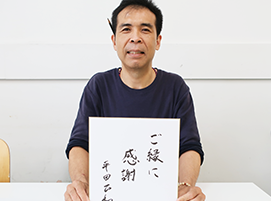 ご縁に
感謝
平田